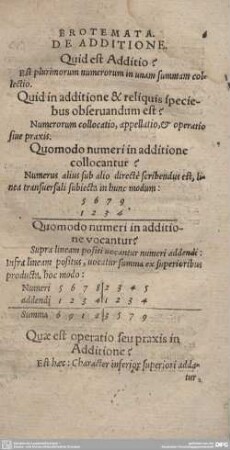 EROTEMATA.
DE ADDITIONE.
Quid est Additio?
Est plurimorum numerorum in unam summam col-
lectio.
Quid in additione & reliquis specie-
bus observandum est?
Numerorum collocatio, appellatio, & operatio
sive praxis.
Quomodo numeri in additione
collocantur?
Numerus alius sub alio directè scribendus est, li-
nea transversali subiecta in hunc modum:
5 6 7 9
1 2 3 4
Quomodo numeri in additio-
ne vocantur?
Supra lineam positi vocantur numeri addendi:
Infra lineam positus, vocatur summa ex superioribus
producta, hoc modo:
Numeri 5 6 7 8 2 3 4 5
addendi 1 2 3 4 1 2 3 4
Summa 6 9 1 2 3 5 7 9
Quæ est operatio seu praxis in
Additione?
Est hæc: Character inferior superiori adda-
tur